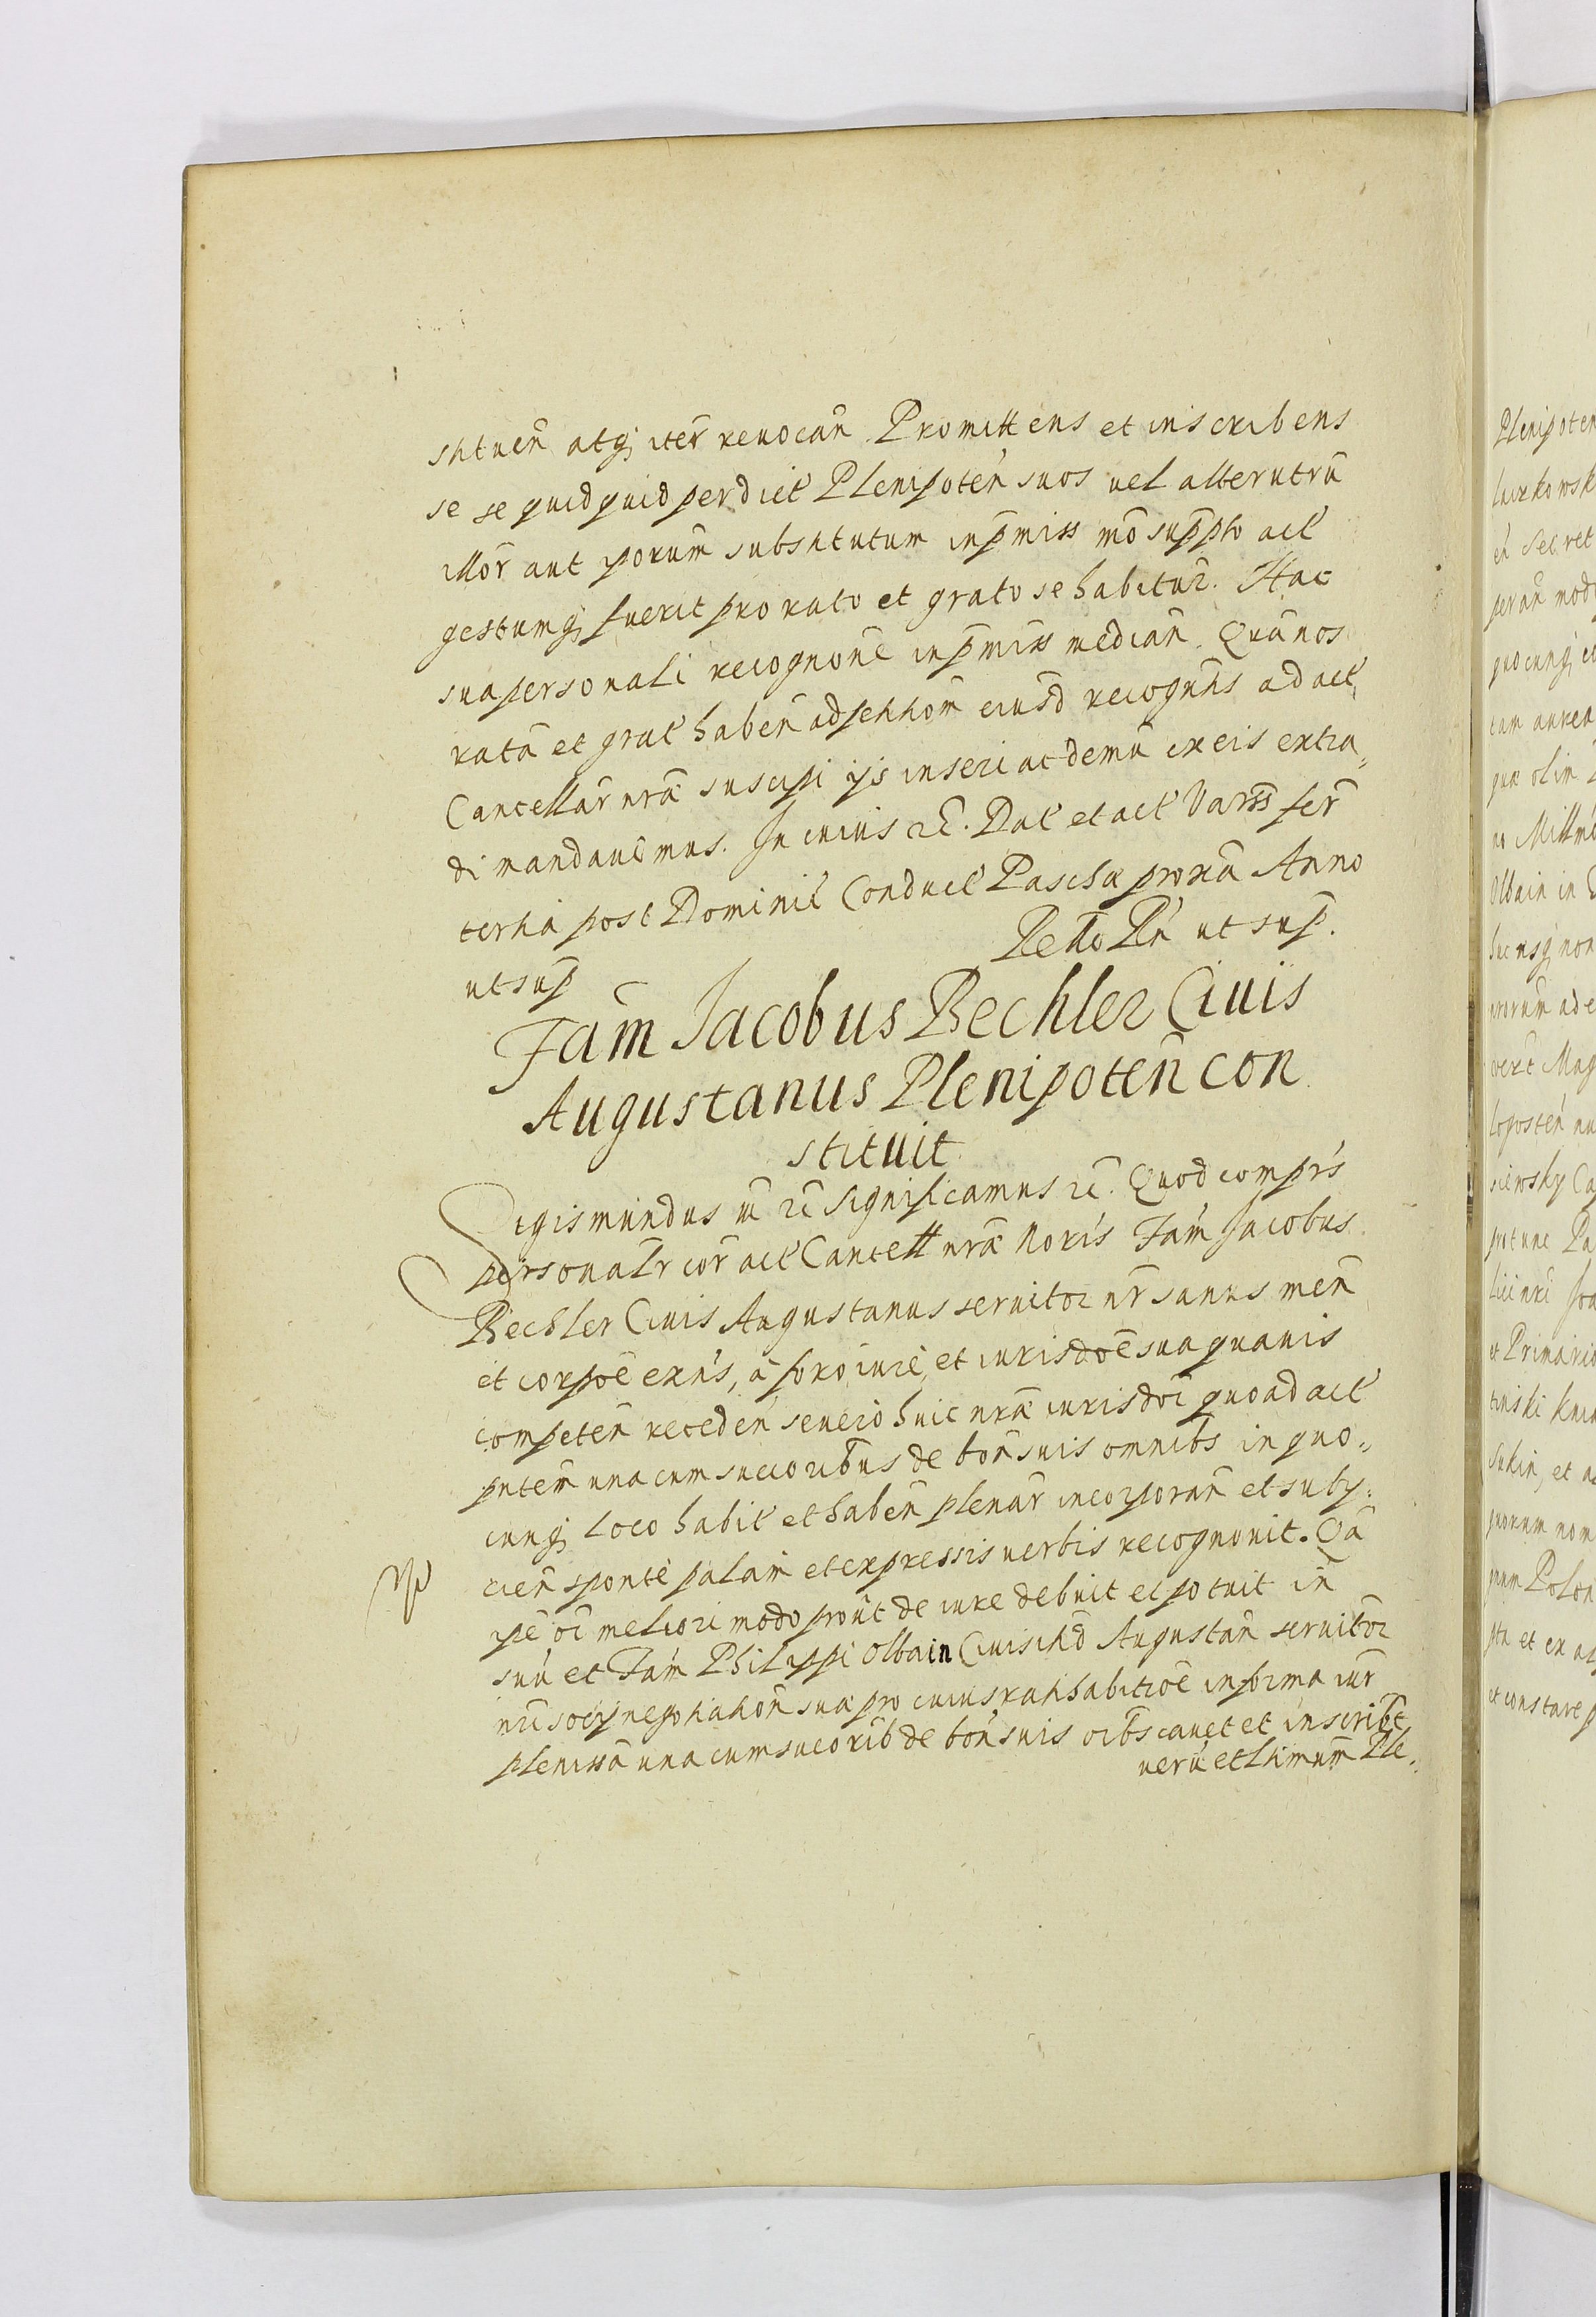 stituen̄ atq; iter̄ reuocan̄. Promittens et inscribens
se se quidquid per dict̄ Plenipoten̄ suos uel alterutrū
illor̄ aut ipsorum substitutum in p̄miss mō suppto act̄
gestumq; fuerit pro rato et grato se habitur̄. Hac
sua personali recognone in p̄miss median̄. Quā nos
ratā et grat̄ haben̄ ad petitiom̄ eiusd̄ recogn̄tis ad act̄
Cancellar̄ nr̄ā suscipi ijs inseri ac demū ex eis extra„
di mandauimus. In cuius rc̄. Dat̄ et act̄ Varss̄ fer̄
tertia post Dominic̄ Conduct̄ Paschæ proxā Anno
ut sup̄
Rello Rn̄ ut sup.
Fam̄ Jacobus Bechler Ciuis
Augustanus Plenipoten̄ con
stituit
Sigismundus iii rc̄ Significamus rc̄. Quod compr̄s
personalr̄ cor̄ act̄ Cancell nrā Noris Fam̄ Jacobus
Bechler Ciuis Augustanus seruitor nr̄ sanus men̄
et corpoē exn̄s, à foro iurē, et iurisdoē sua quauis
competen̄ receden̄ se uero huic nrā iurisdoī quoad act̄
pn̄tem una cum succoribus de bon̄ suis omnibs in quo„
cunq; loco habit̄ et haben̄ plenar̄ incorporan̄ et subij„
cien̄ sponte palam̄ et expressis uerbis recognouit. Qā
ip̄e oī meliori modo prout de iure debuit et potuit in̄
suū et Fam̄ Philippi Olbain Ciuis itid̄ Augustan̄ seruitor
nr̄i socij negotiation̄ suā pro cuius ratihabitioē in forma iur̄
plenissā una cum succorib de bon̄ suis oībs cauet et inscribt
uerū et ltimum̄ Ple„
Plenipoten
laczkowsk
et Secret
peran̄ mod
quocunq; et
tam aurea
quæ olim
no Mittmo
Olbain in
huc usq; non
ad e
Mag
nu
siewsky Ca
pro tunc Pa
et Primario
tinski
Sukin, et a
quorum nom
gnum Polon
ptu et ex a
et constare p